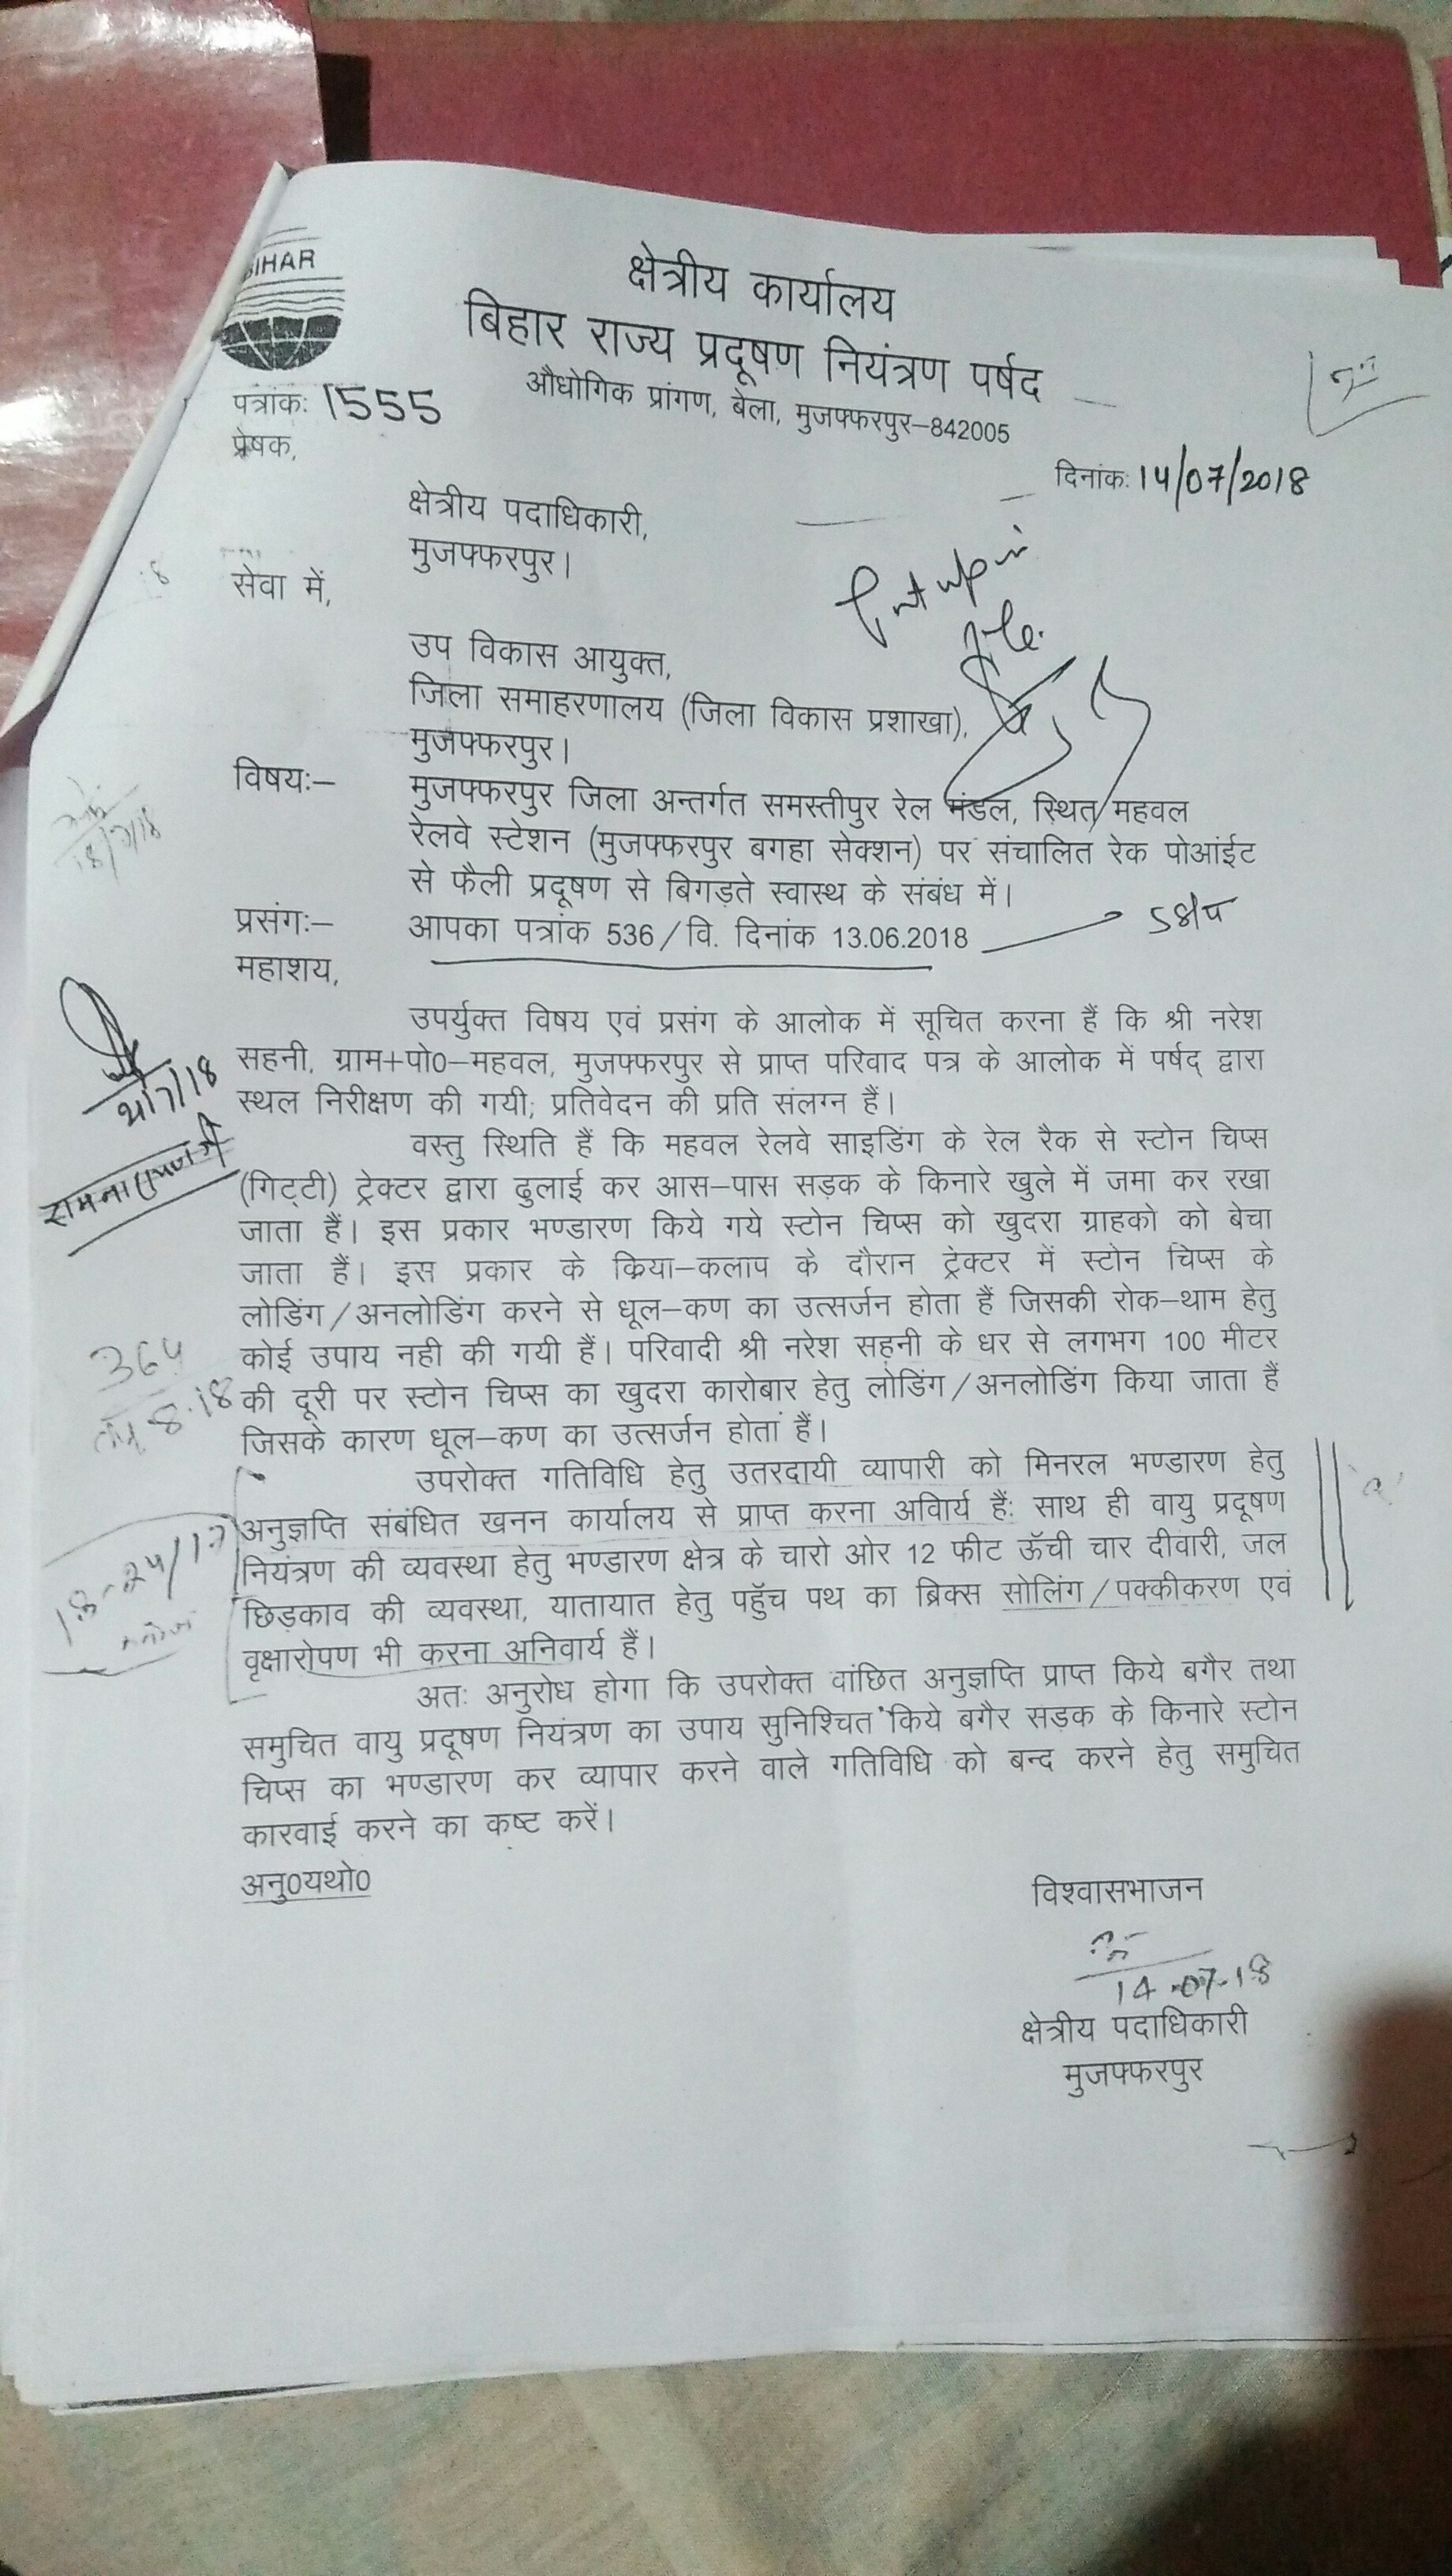 BIHAR
क्षेत्रीय कार्यालय
बिहार राज्य प्रदूषण नियंत्रण पर्षद
औधोगिक प्रांगण, बेला, मुजफ्फरपुर–842005
पत्रांकः 1555
प्रेषक,
दिनांकः 14/07/2018
क्षेत्रीय पदाधिकारी,
मुजफ्फरपुर।
सेवा में,
Put up in
file.
उप विकास आयुक्त,
जिला समाहरणालय (जिला विकास प्रशाखा),
मुजफ्फरपुर।
विषयः– मुजफ्फरपुर जिला अन्तर्गत समस्तीपुर रेल मंडल, स्थित महवल
रेलवे स्टेशन (मुजफ्फरपुर बगहा सेक्शन) पर संचालित रेक पोआंईट
से फैली प्रदूषण से बिगड़ते स्वास्थ के संबंध में।
प्रसंगः– आपका पत्रांक 536/वि. दिनांक 13.06.2018
महाशय,
उपर्युक्त विषय एवं प्रसंग के आलोक में सूचित करना हैं कि श्री नरेश
सहनी, ग्राम+पो0–महवल, मुजफ्फरपुर से प्राप्त परिवाद पत्र के आलोक में पर्षद् द्वारा
स्थल निरीक्षण की गयी; प्रतिवेदन की प्रति संलग्न हैं।
वस्तु स्थिति हैं कि महवल रेलवे साइडिंग के रेल रैक से स्टोन चिप्स
(गिट्टी) ट्रेक्टर द्वारा ढुलाई कर आस–पास सड़क के किनारे खुले में जमा कर रखा
जाता हैं। इस प्रकार भण्डारण किये गये स्टोन चिप्स को खुदरा ग्राहको को बेचा
जाता हैं। इस प्रकार के क्रिया–कलाप के दौरान ट्रेक्टर में स्टोन चिप्स के
लोडिंग/अनलोडिंग करने से धूल–कण का उत्सर्जन होता हैं जिसकी रोक–थाम हेतु
कोई उपाय नही की गयी हैं। परिवादी श्री नरेश सहनी के धर से लगभग 100 मीटर
की दूरी पर स्टोन चिप्स का खुदरा कारोबार हेतु लोडिंग/अनलोडिंग किया जाता हैं
जिसके कारण धूल–कण का उत्सर्जन होता हैं।
उपरोक्त गतिविधि हेतु उतरदायी व्यापारी को मिनरल भण्डारण हेतु
अनुज्ञप्ति संबंधित खनन कार्यालय से प्राप्त करना अविार्य हैंः साथ ही वायु प्रदूषण
नियंत्रण की व्यवस्था हेतु भण्डारण क्षेत्र के चारो ओर 12 फीट ऊँची चार दीवारी, जल
छिड़काव की व्यवस्था, यातायात हेतु पहुँच पथ का ब्रिक्स सोलिंग/पक्कीकरण एवं
वृक्षारोपण भी करना अनिवार्य हैं।
अतः अनुरोध होगा कि उपरोक्त वांछित अनुज्ञप्ति प्राप्त किये बगैर तथा
समुचित वायु प्रदूषण नियंत्रण का उपाय सुनिश्चित किये बगैर सड़क के किनारे स्टोन
चिप्स का भण्डारण कर व्यापार करने वाले गतिविधि को बन्द करने हेतु समुचित
कारवाई करने का कष्ट करें।
अनु0यथो0
विश्वासभाजन
14-07-18
क्षेत्रीय पदाधिकारी
मुजफ्फरपुर